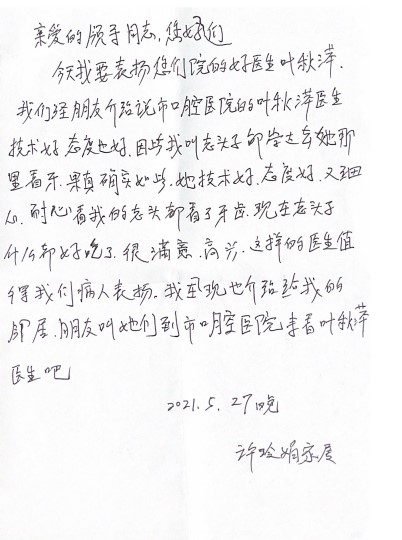 亲爱的领导同志，您好们
今天我要表扬您们院的好医生叶秋萍.
我们经朋友介绍说市口腔医院的叶秋萍医生
技术好 态度也好.因此我叫老头子都常去去她那
里看牙.果真确实如此.她技术好.态度好.又细
心.耐心看我的老头都看了牙齿.现在老头子
什么都好吃了.很满意.高兴.这样的医生值
得我们病人表扬.我现也介绍给我的
邻居.朋友叫她们到市口腔医院来看叶秋萍
医生吧
2021.5.27晚
许玲娟家属